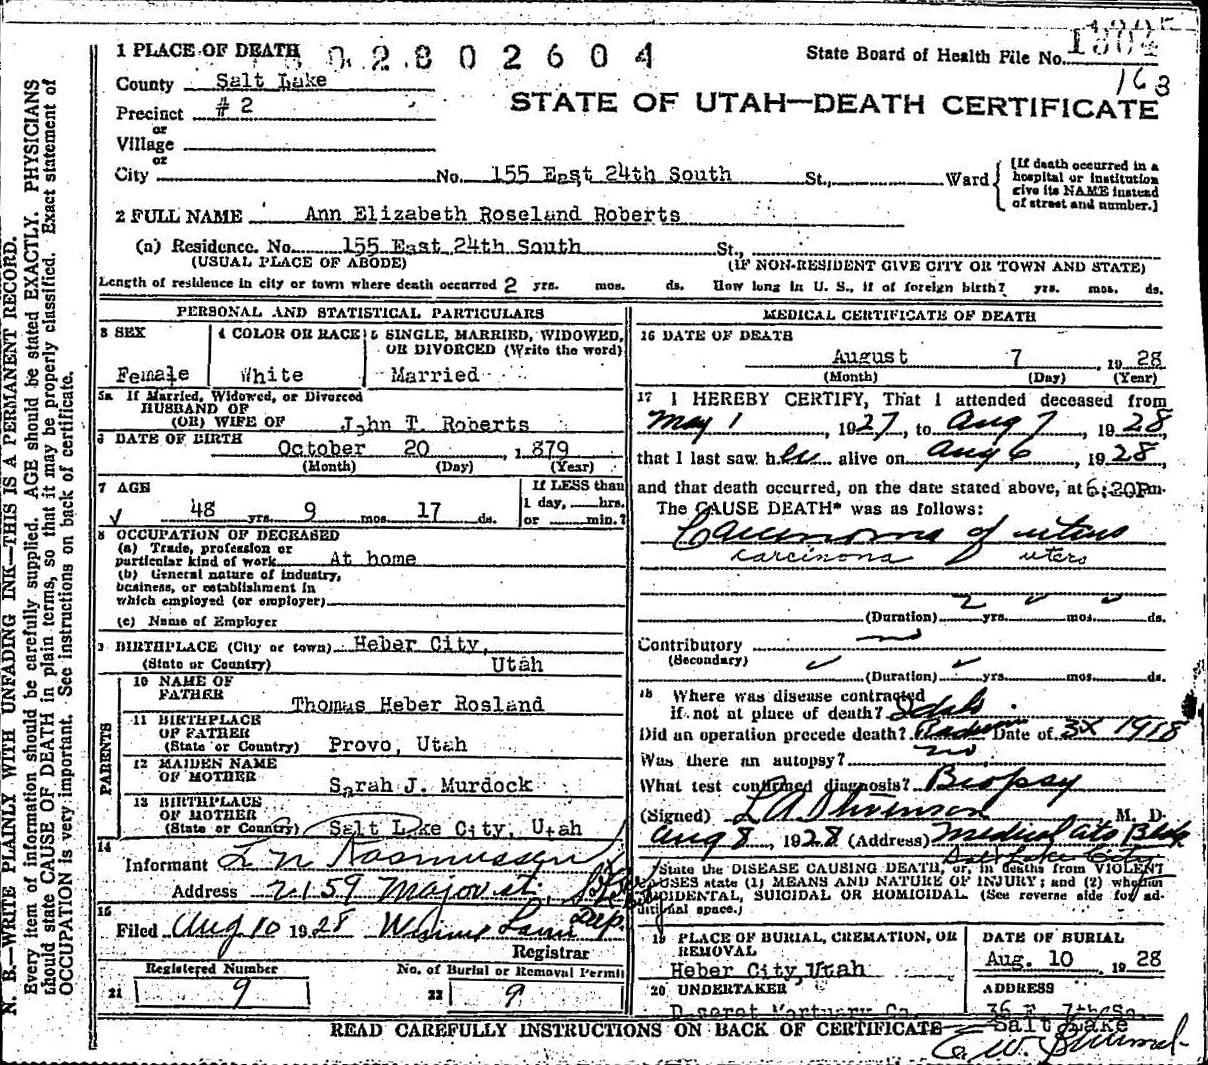 1 PLACE OF DEATH 02802604
State Board of Health File No. 1304
163
County Salt Lake
Precinct # 2
STATE OF UTAH—DEATH CERTIFICATE
or
Village
or
City No. 155 East 24th South St., Ward
(If death occurred in a
hospital or institution
give its NAME instead
of street and number.)
2 FULL NAME Ann Elizabeth Roselund Roberts
(a) Residence. No. 155 East 24th South St.,
(USUAL PLACE OF ABODE) (IF NON-RESIDENT GIVE CITY OR TOWN AND STATE)
Length of residence in city or town where death occurred 2 yrs. mos. ds. How long in U. S., if of foreign birth? yrs. mos. ds.
PERSONAL AND STATISTICAL PARTICULARS
3 SEX
Female
4 COLOR OR RACE
White
5 SINGLE, MARRIED, WIDOWED,
OR DIVORCED (Write the word)
Married
5a If Married, Widowed, or Divorced
HUSBAND OF
(OR) WIFE OF John T. Roberts
6 DATE OF BIRTH October 20, 1879
(Month) (Day) (Year)
7 AGE
48 yrs. 9 mos. 17 ds.
If LESS than
1 day, hrs.
or min.?
8 OCCUPATION OF DECEASED
(a) Trade, profession or
particular kind of work At home
(b) General nature of industry,
business, or establishment in
which employed (or employer)
(c) Name of Employer
9 BIRTHPLACE (City or town) Heber City,
(State or Country) Utah
PARENTS
10 NAME OF
FATHER Thomas Heber Rosland
11 BIRTHPLACE
OF FATHER
(State or Country) Provo, Utah
12 MAIDEN NAME
OF MOTHER Sarah J. Murdock
13 BIRTHPLACE
OF MOTHER
(State or Country) Salt Lake City, Utah
14
Informant L N Rasmussen
Address 2159 Major st.
15
Filed Aug 10 1928 Dep.
Registrar
Registered Number
21 9
No. of Burial or Removal Permit
22 9
MEDICAL CERTIFICATE OF DEATH
16 DATE OF DEATH
August 7, 1928
(Month) (Day) (Year)
17 I HEREBY CERTIFY, That I attended deceased from
May 1, 1927, to Aug 7, 1928,
that I last saw her alive on Aug 6, 1928,
and that death occurred, on the date stated above, at 6:20 Pm.
The CAUSE DEATH* was as follows:
Carcinoma of uterus
carcinona uters
(Duration) 2 yrs. mos. ds.
Contributory no
(Secondary)
(Duration) yrs. mos. ds.
18 Where was disease contracted
if not at place of death? Idaho
Did an operation precede death? Radium Date of 3X 1918
Was there an autopsy? no
What test confirmed diagnosis? Biopsy
(Signed) L A Stevenson M. D.
Aug 8, 1928 (Address) Medical Arts Bldg
Salt Lake City
State the DISEASE CAUSING DEATH, or, in deaths from VIOLENT
CAUSES state (1) MEANS AND NATURE OF INJURY; and (2) whether
ACCIDENTAL, SUICIDAL OR HOMICIDAL. (See reverse side for ad-
ditional space.)
19 PLACE OF BURIAL, CREMATION, OR
REMOVAL
Heber City, Utah
DATE OF BURIAL
Aug. 10, 1928
20 UNDERTAKER
Deseret Mortuary Co.
ADDRESS
36 E 7th So.
Salt Lake
READ CAREFULLY INSTRUCTIONS ON BACK OF CERTIFICATE
N. B.—WRITE PLAINLY WITH UNFADING INK—THIS IS A PERMANENT RECORD.
Every item of information should be carefully supplied. AGE should be stated EXACTLY. PHYSICIANS
should state CAUSE OF DEATH in plain terms, so that it may be properly classified. Exact statement of
OCCUPATION is very important. See instructions on back of certificate.